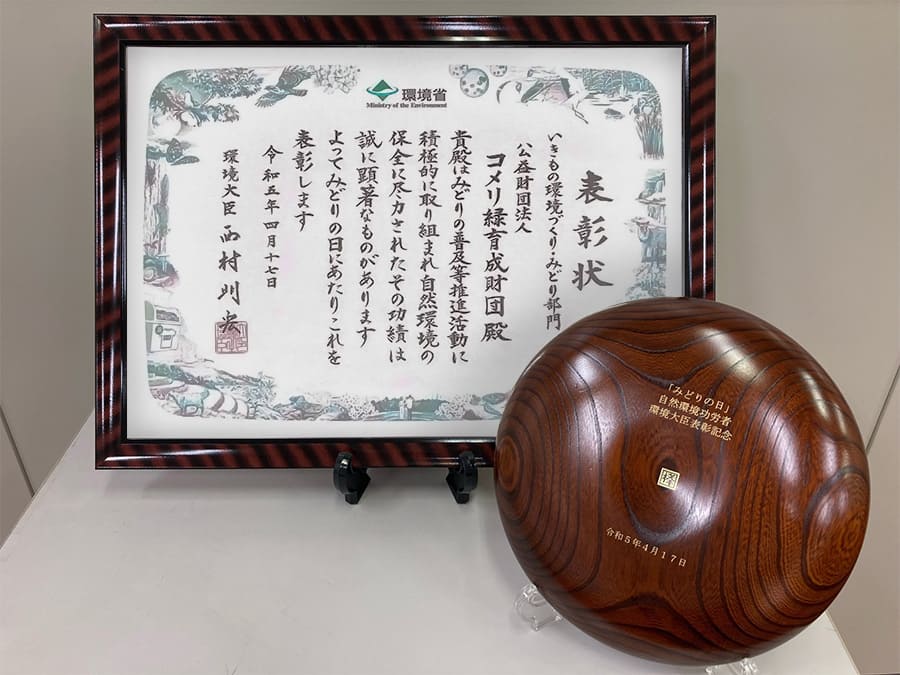 環境省
Ministry of the Environment
表彰状
いきもの環境づくり・みどり部門
公益財団法人
コメリ緑育成財団殿
貴殿はみどりの普及等推進活動に
積極的に取り組まれ自然環境の
保全に尽力されたその功績は
誠に顕著なものがあります
よってみどりの日にあたりこれを
表彰します
令和五年四月十七日
環境大臣 西村明宏
「みどりの日」
自然環境功労者
環境大臣表彰記念
令和5年4月17日